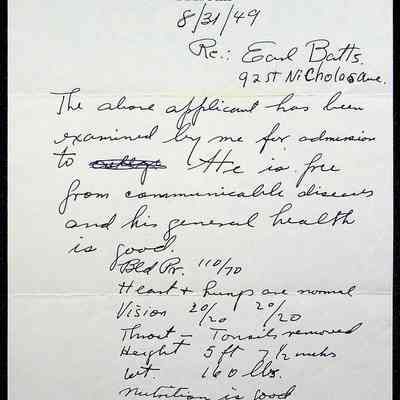 8/31/49
Re.: Earl Batts.
92 St Nicholas Ave.
The above applicant has been
examined by me for admission
to college He is free
from communicable diseases
and his general health
is good.
Bld Pr. 110/70
Heart + lungs are normal
Vision 20/20 20/20
Throat - Tonsils removed
Height 5 ft 7 1/2 inches
wt. 160 lbs.
nutrition is good